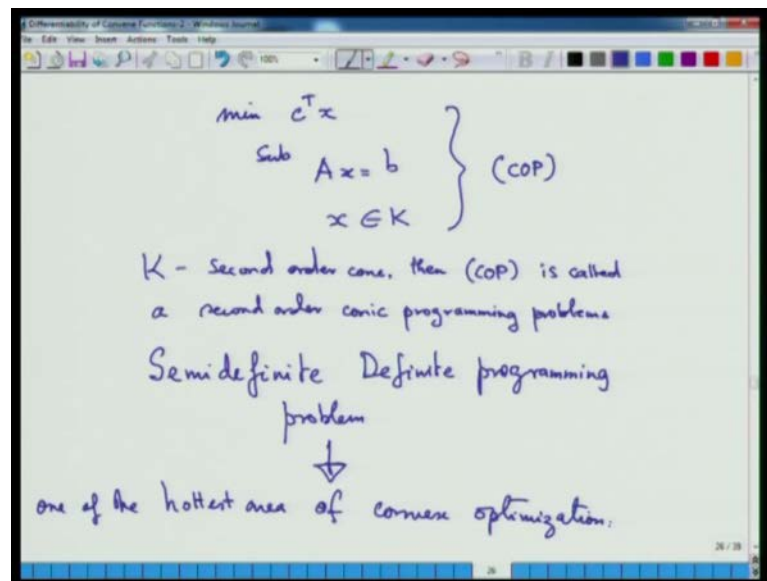 Differentiability of Convex Functions-2 - Windows Journal
File Edit View Insert Actions Tools Help
100%
min c^T x
Sub Ax = b
x ∈ K
(COP)
K - Second order cone, then (COP) is called
a second order conic programming problems
Semidefinite Definite programming
problem
one of the hottest area of convex optimization.
26 / 28
26